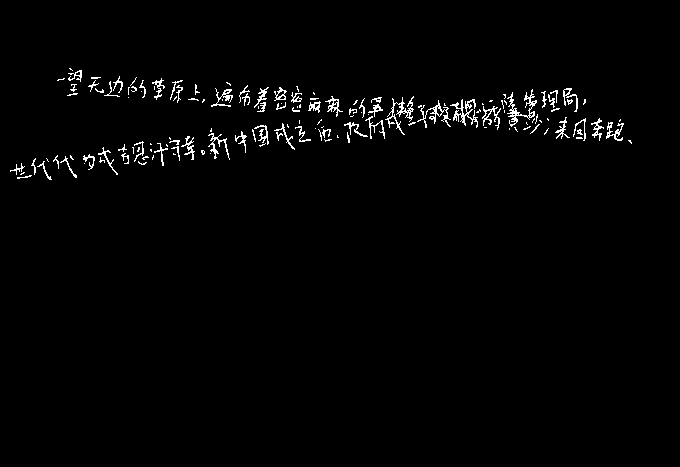 一望无边的草原上,遍布着密密麻麻的 管理局,
世代代为成吉思汗守孝。新中国成立后, 来回奔跑、